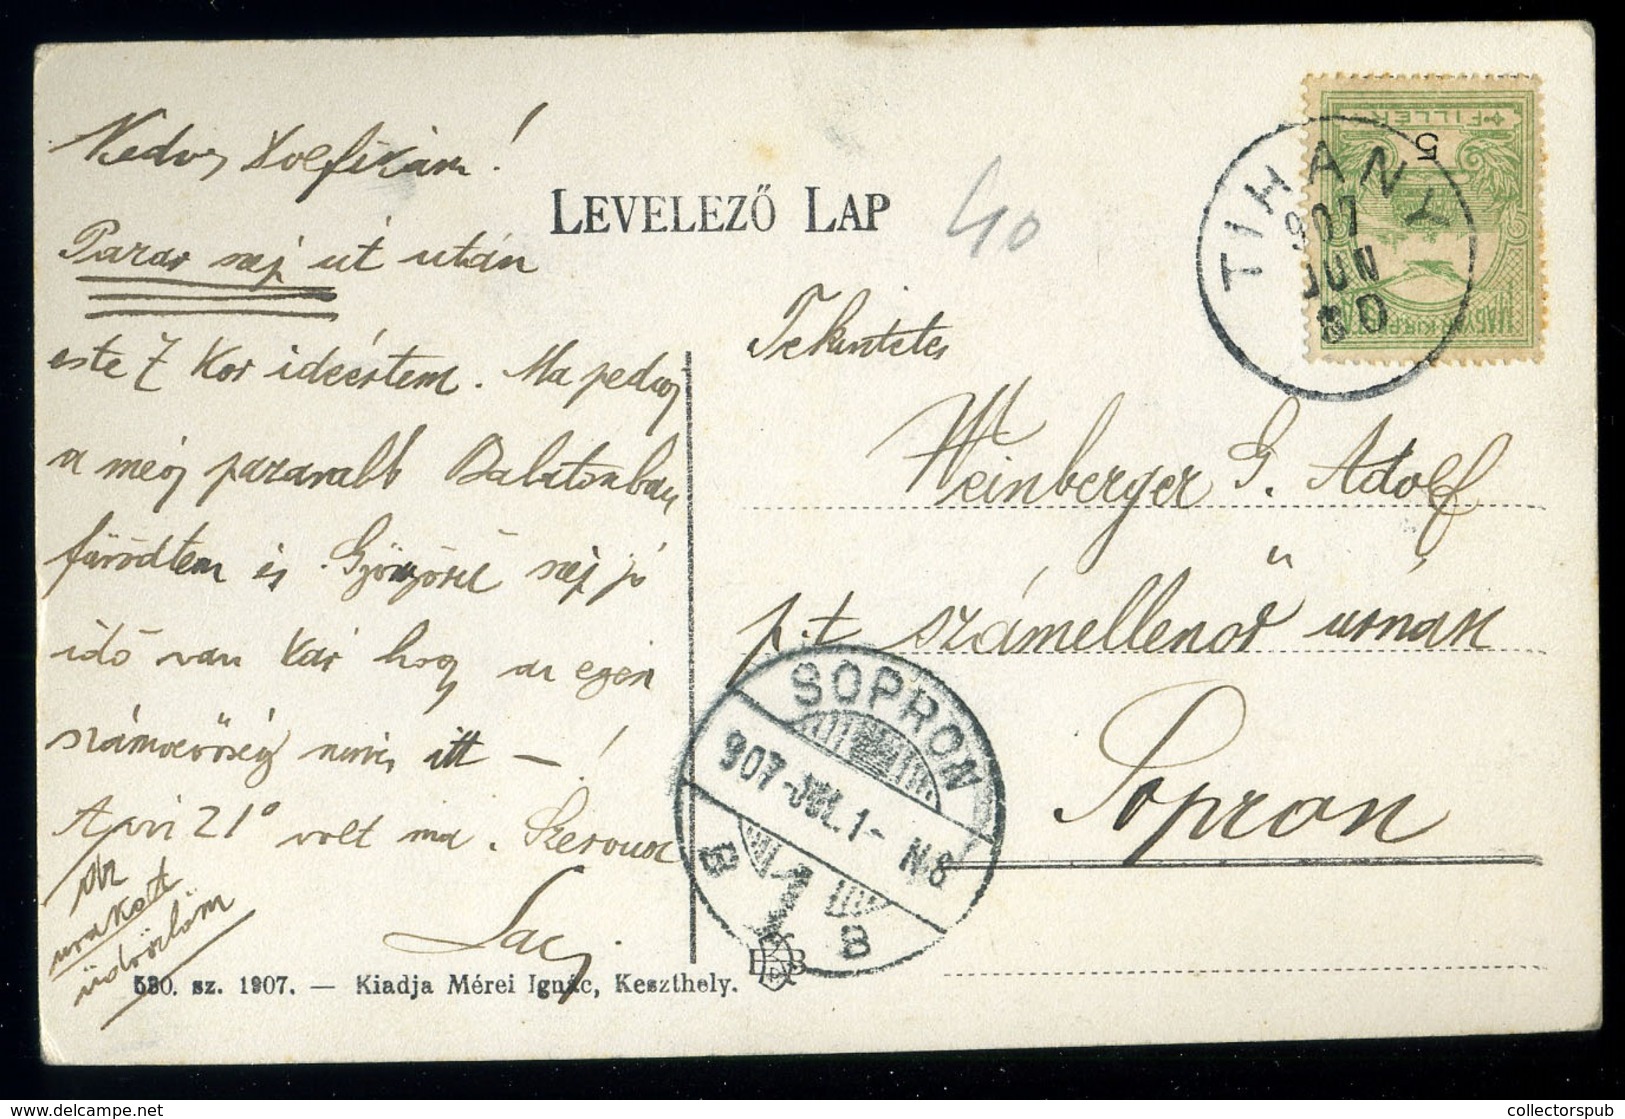 Kedves Dolfikám!
LEVELEZŐ LAP
40
5
FILLÉR
TIHANY
907
JUN
30
Pazar szép út után
este 7 kor ideértem. Ma pedig
a még pazarabb Balatonban
fürödtem és Gyönyörű szép jó
idő van kár hogy az egész
számvevőség nincs itt —!
21° volt ma. Szervusz
Az
urakat
üdvözlöm
Laci
Tekintetes
Weinberger G. Adolf
p.t számellenőr urnak
Sopron
SOPRON
907-JUL.1- N8
B 1 B
530. sz. 1907. — Kiadja Mérei Ignác, Keszthely.
collectorspub.com